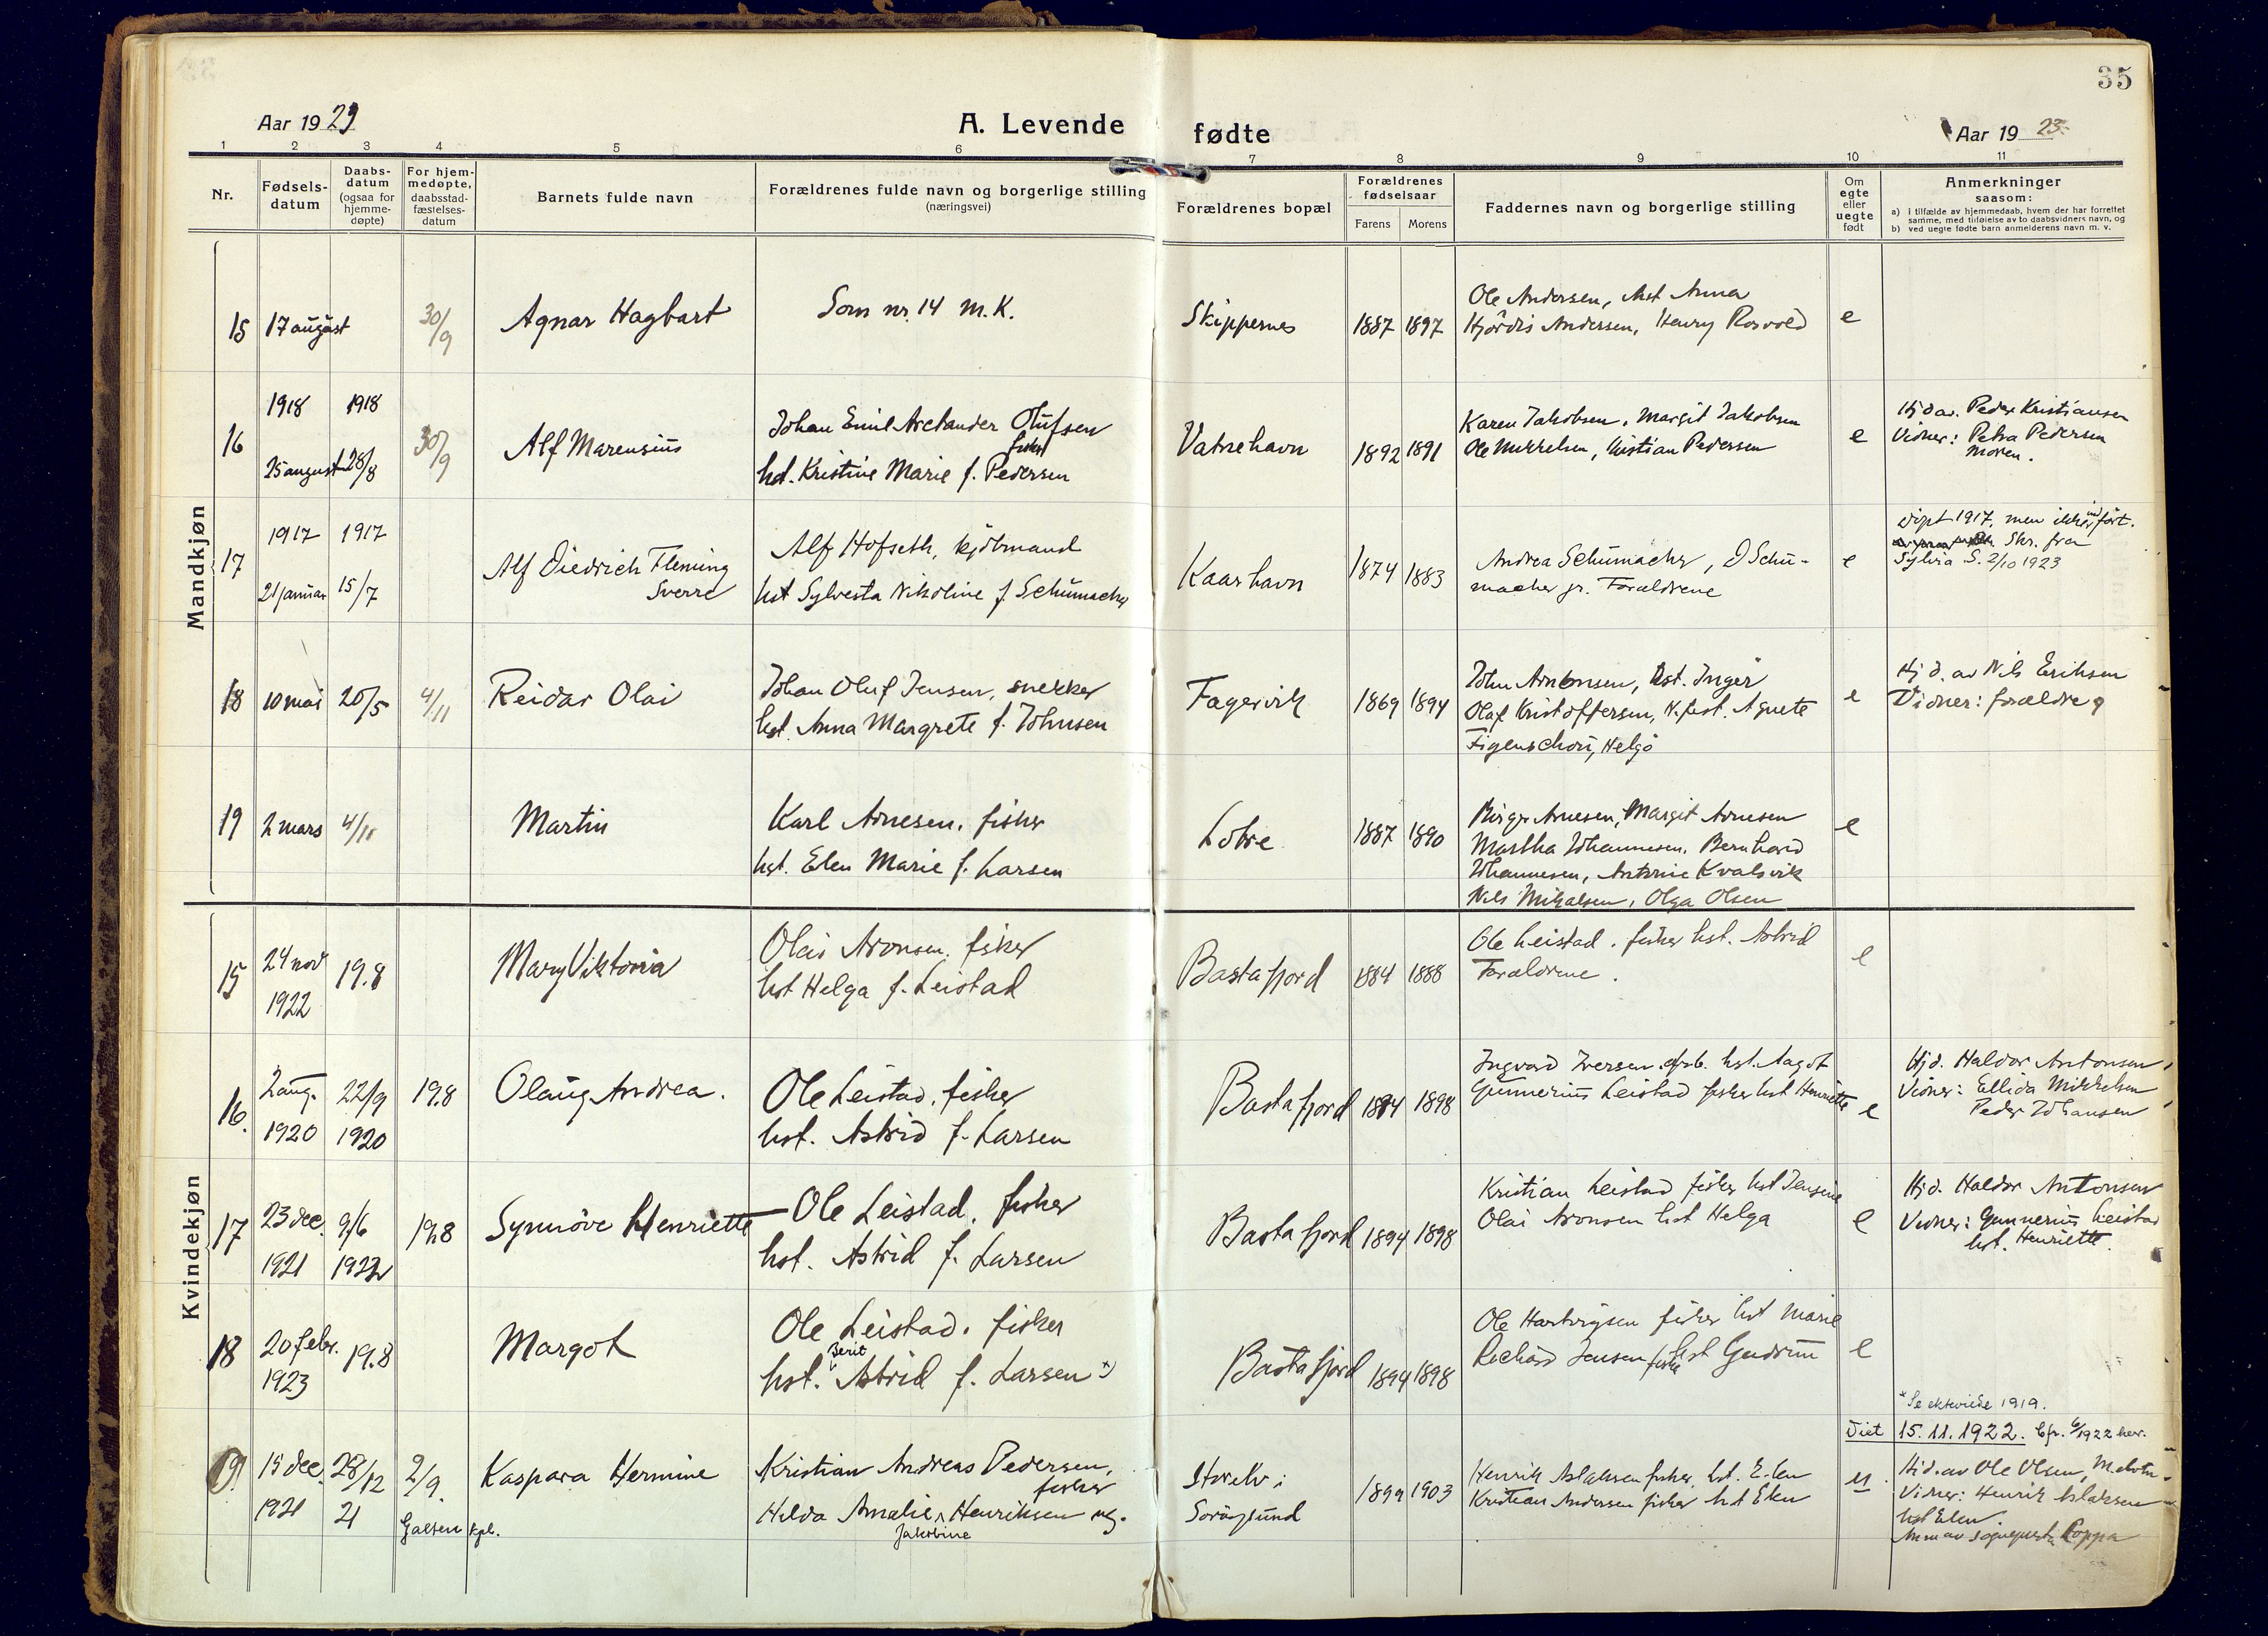 35
Aar 1923
A. Levende fødte
Aar 1923.
1 2 3 4 5 6 7 8 9 10 11
Nr.
Fødsels-
datum
Daabs-
datum
(ogsaa for
hjemme-
døpte)
For hjem-
medøpte,
daabsstad-
fæstelses-
datum
Barnets fulde navn
Forældrenes fulde navn og borgerlige stilling
(næringsvei)
Forældrenes bopæl
Forældrenes
fødselsaar
Farens Morens
Faddernes navn og borgerlige stilling
Om
egte
eller
uegte
født
Anmerkninger
saasom:
a) i tilfælde av hjemmedaab, hvem der har forrettet
samme, med tilføielse av to daabsvidners navn, og
b) ved uegte fødte barn anmelderens navn m. v.
Mandkjøn
15 17 august 30/9 Agnar Hagbart Som nr. 14 M.K. Skippernes 1887 1897
Ole Andersen, hst Anna
Hjørdis Andersen, Henry Rosvold
e
16 1918 1918
25 august 28/8 30/9 Alf Marensius
Johan Emil Arelander Olufsen
fisker
hst. Kristine Marie f. Pedersen
Vatnehavn 1892 1891
Karen Jakobsen, Margit Jakobsen
Ole Mikkelsen, Kristian Pedersen
e
Hj d av. Peder Kristiansen
Vidner: Petra Pedersen
Moren.
17 1917 1917
21 januar 15/7
Alf Diedrich Fleming
Sverre
Alf Hofseth, kjøbmand
hst Sylvesta Nikoline f Schumacher
Kaarhavn 1874 1883
Andrea Schumacher, D Schu-
macher jr. Forældrene
e
Døpt 1917, men ikke indført.
Skr. fra
Sylvia S. 2/10 1923
18 10 mai 20/5 4/11 Reidar Olai
Johan Oluf Jensen, snekker
hst. Anna Margrete f. Johnsen
Fagervik 1869 1894
John Arnonsen, hst. Inger
Olaf Kristoffersen, N. hst. Agnete
Figenschou, Helgø
e
Hj d. av Nils Eriksen
Vidner: forældre
19 2 mars 4/11 Martin
Karl Arnesen, fisker
hst. Elen Marie f. Larsen
Lobre 1887 1890
Birger Arnesen, Margit Arnesen
Martha Johannesen, Bernhard
Johannesen, Antonie Kvalsvik
Nils Mikalsen, Olga Olsen
e
Kvindekjøn
15 24 nov
1922 19.8 Mary Viktoria
Olai Aronsen, fisker
hst Helga f. Leistad
Bastafjord 1884 1888
Ole Leistad, fisker hst. Astrid
Forældrene.
e
16. 2 aug.
1920 22/9
1920 19.8 Olaug Andrea.
Ole Leistad, fisker
hst. Astrid f. Larsen
Bastafjord 1894 1898
Ingvard Iversen, hst. Aagot
Gunnerius Leistad fisker hst Henriette
e
Hjd. Haldor Antonsen
Vidner: Ellida Mikkelsen
Peder Johansen
17 23 dec.
1921 9/6
1922 19.8 Synnöve Henriette
Ole Leistad, fisker
hst. Astrid f. Larsen
Bastafjord 1894 1898
Kristian Leistad fisker hst Jensine
Olai Aronsen hst Helga
e
Hjd. Haldor Antonsen
Vidner: Gunnerius Leistad
hst. Henriette.
18 20 febr.
1923 19.8 Margot
Ole Leistad, fisker
hst. Berit Astrid f. Larsen *)
Bastafjord 1894 1898
Ole Hartvigsen fisker hst Marie
Richard Jensen fisker hst Gudrun
e
* Se ekteviede 1919.
19 15 dec.
1921 28/12
21 2/9.
Galten kpl.
Kaspara Hermine
Kristian Andreas Pedersen,
fisker
Helda Amalie Jakobine Henriksen ug.
Storelv i
Sørøysund
1899 1903
Henrik Aslaksen fisker, hst. Elen
Kristian Andersen fisker hst Elen
u.
Viet 15.11.1922. Cfr. 6/1922 her.
Hjd. av Ole Olsen,
Vidner: Henrik Aslaksen
hst Elen
Anm av sogneprest Roppa